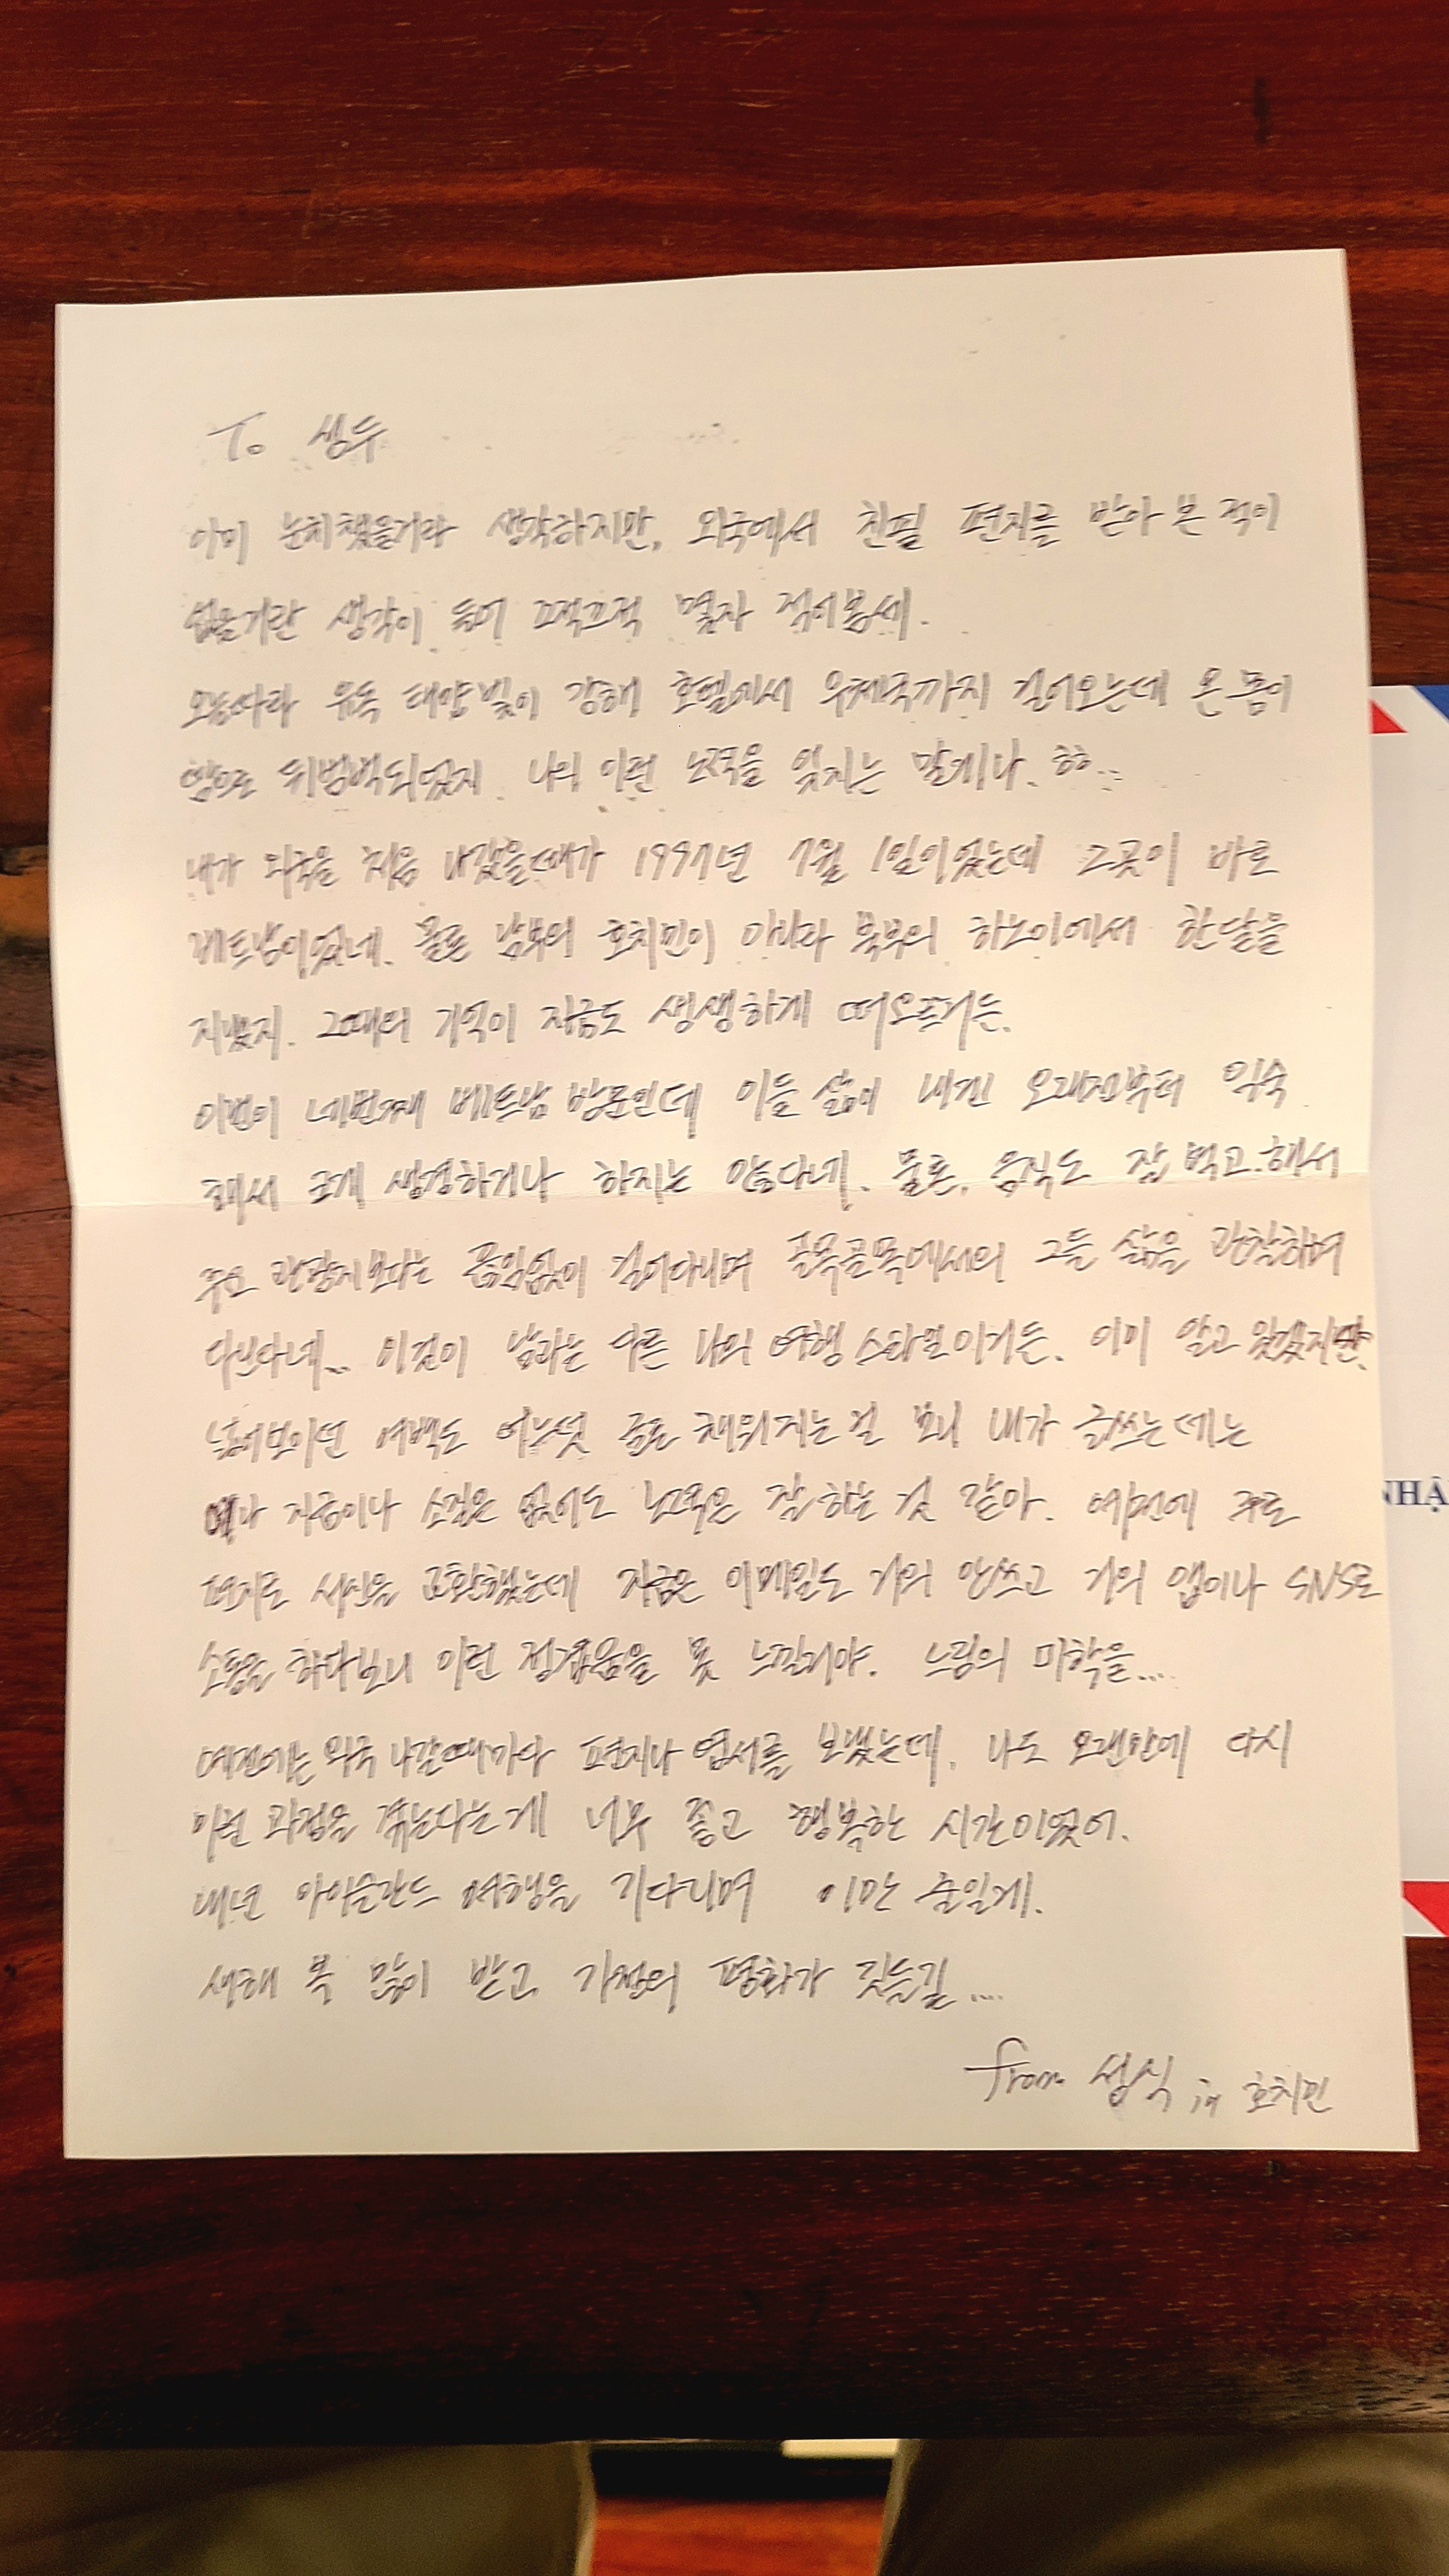 To 생두
이미 눈치챘을거라 생각하지만, 외국에서 친필 편지를 받아 본 적이
없을거란 생각이 들어 끄적끄적 몇자 적어봄세.
오늘따라 유독 태양빛이 강해 호텔에서 우체국까지 걸어오는데 온 몸이
땀으로 뒤범벅되었지. 나의 이런 노력을 잊지는 말게나. 하하..
내가 외국을 처음 나갔을때가 1997년 7월 1일이었는데 그곳이 바로
베트남이었네. 물론 남부의 호치민이 아니라 북부의 하노이에서 한달을
지냈지. 그때의 기억이 지금도 생생하게 떠오르거든.
이번이 네번째 베트남 방문인데 이들 삶이 내겐 오래전부터 익숙
해서 크게 생경하거나 하지는 않다네. 물론, 음식도 잘 먹고.해서
주요 관광지보다는 끊임없이 걸어다니며 골목골목에서의 그들 삶을 관찰하며
다닌다네... 이것이 남과는 다른 나의 여행 스타일이거든. 이미 알고 있겠지만.
넓어보이던 여백도 어느덧 글로 채워지는 걸 보니 내가 글쓰는데는
예나 지금이나 소질은 없어도 노력은 잘 하는 것 같아. 예전에 주로
편지로 서신을 교환했는데 지금은 이메일도 거의 안쓰고 거의 앱이나 SNS로
소통을 하다보니 이런 정겨움을 못 느낄거야. 느림의 미학을....
예전에는 외국 나갈때마다 편지나 엽서를 보냈는데, 나도 오랜만에 다시
이런 과정을 겪는다는게 너무 좋고 행복한 시간이었어.
내년 아이슬란드 여행을 기다리며 이만 줄일게.
새해 복 많이 받고 가정의 평화가 깃들길....
from 성식 in 호치민
NHẬ